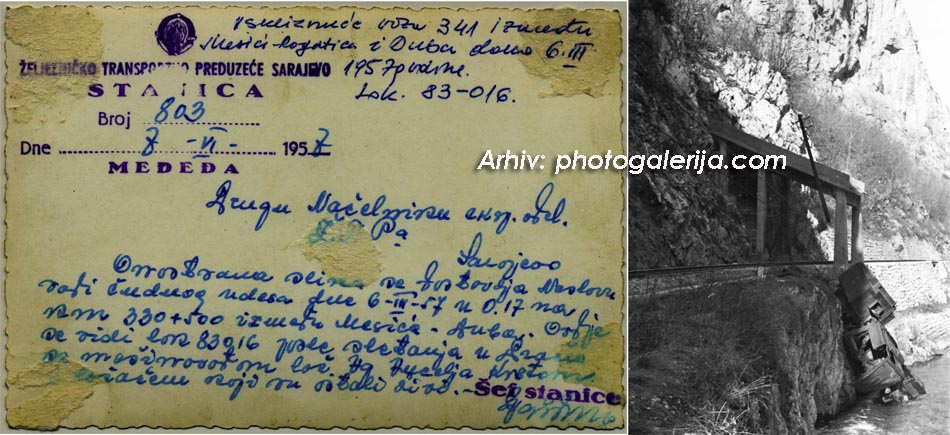 Iskliznuće voza 341 između
Mesići-Rogatica i Duba dana 6.III
ŽELJEZNIČKO TRANSPORTNO PREDUZEĆE SARAJEVO
1957 godine.
STANICA
Lok. 83-016.
Broj 803
Dne 7-VI- 1957
MEĐEĐA
Arhiv: photogalerija.com
Drugu Načelniku eksp. odel.
ŽTP-a
Sarajevo
Ovostrana slika se dostavlja Naslovu
radi čudnog udesa dne 6-III-57 u 0.17 na
km 330+500 između Mesića - Duba. Ovdje
se vidi lok 83016 posle sletanja u
sa mašinovođom
koji su ostali živi.-
Šef stanice